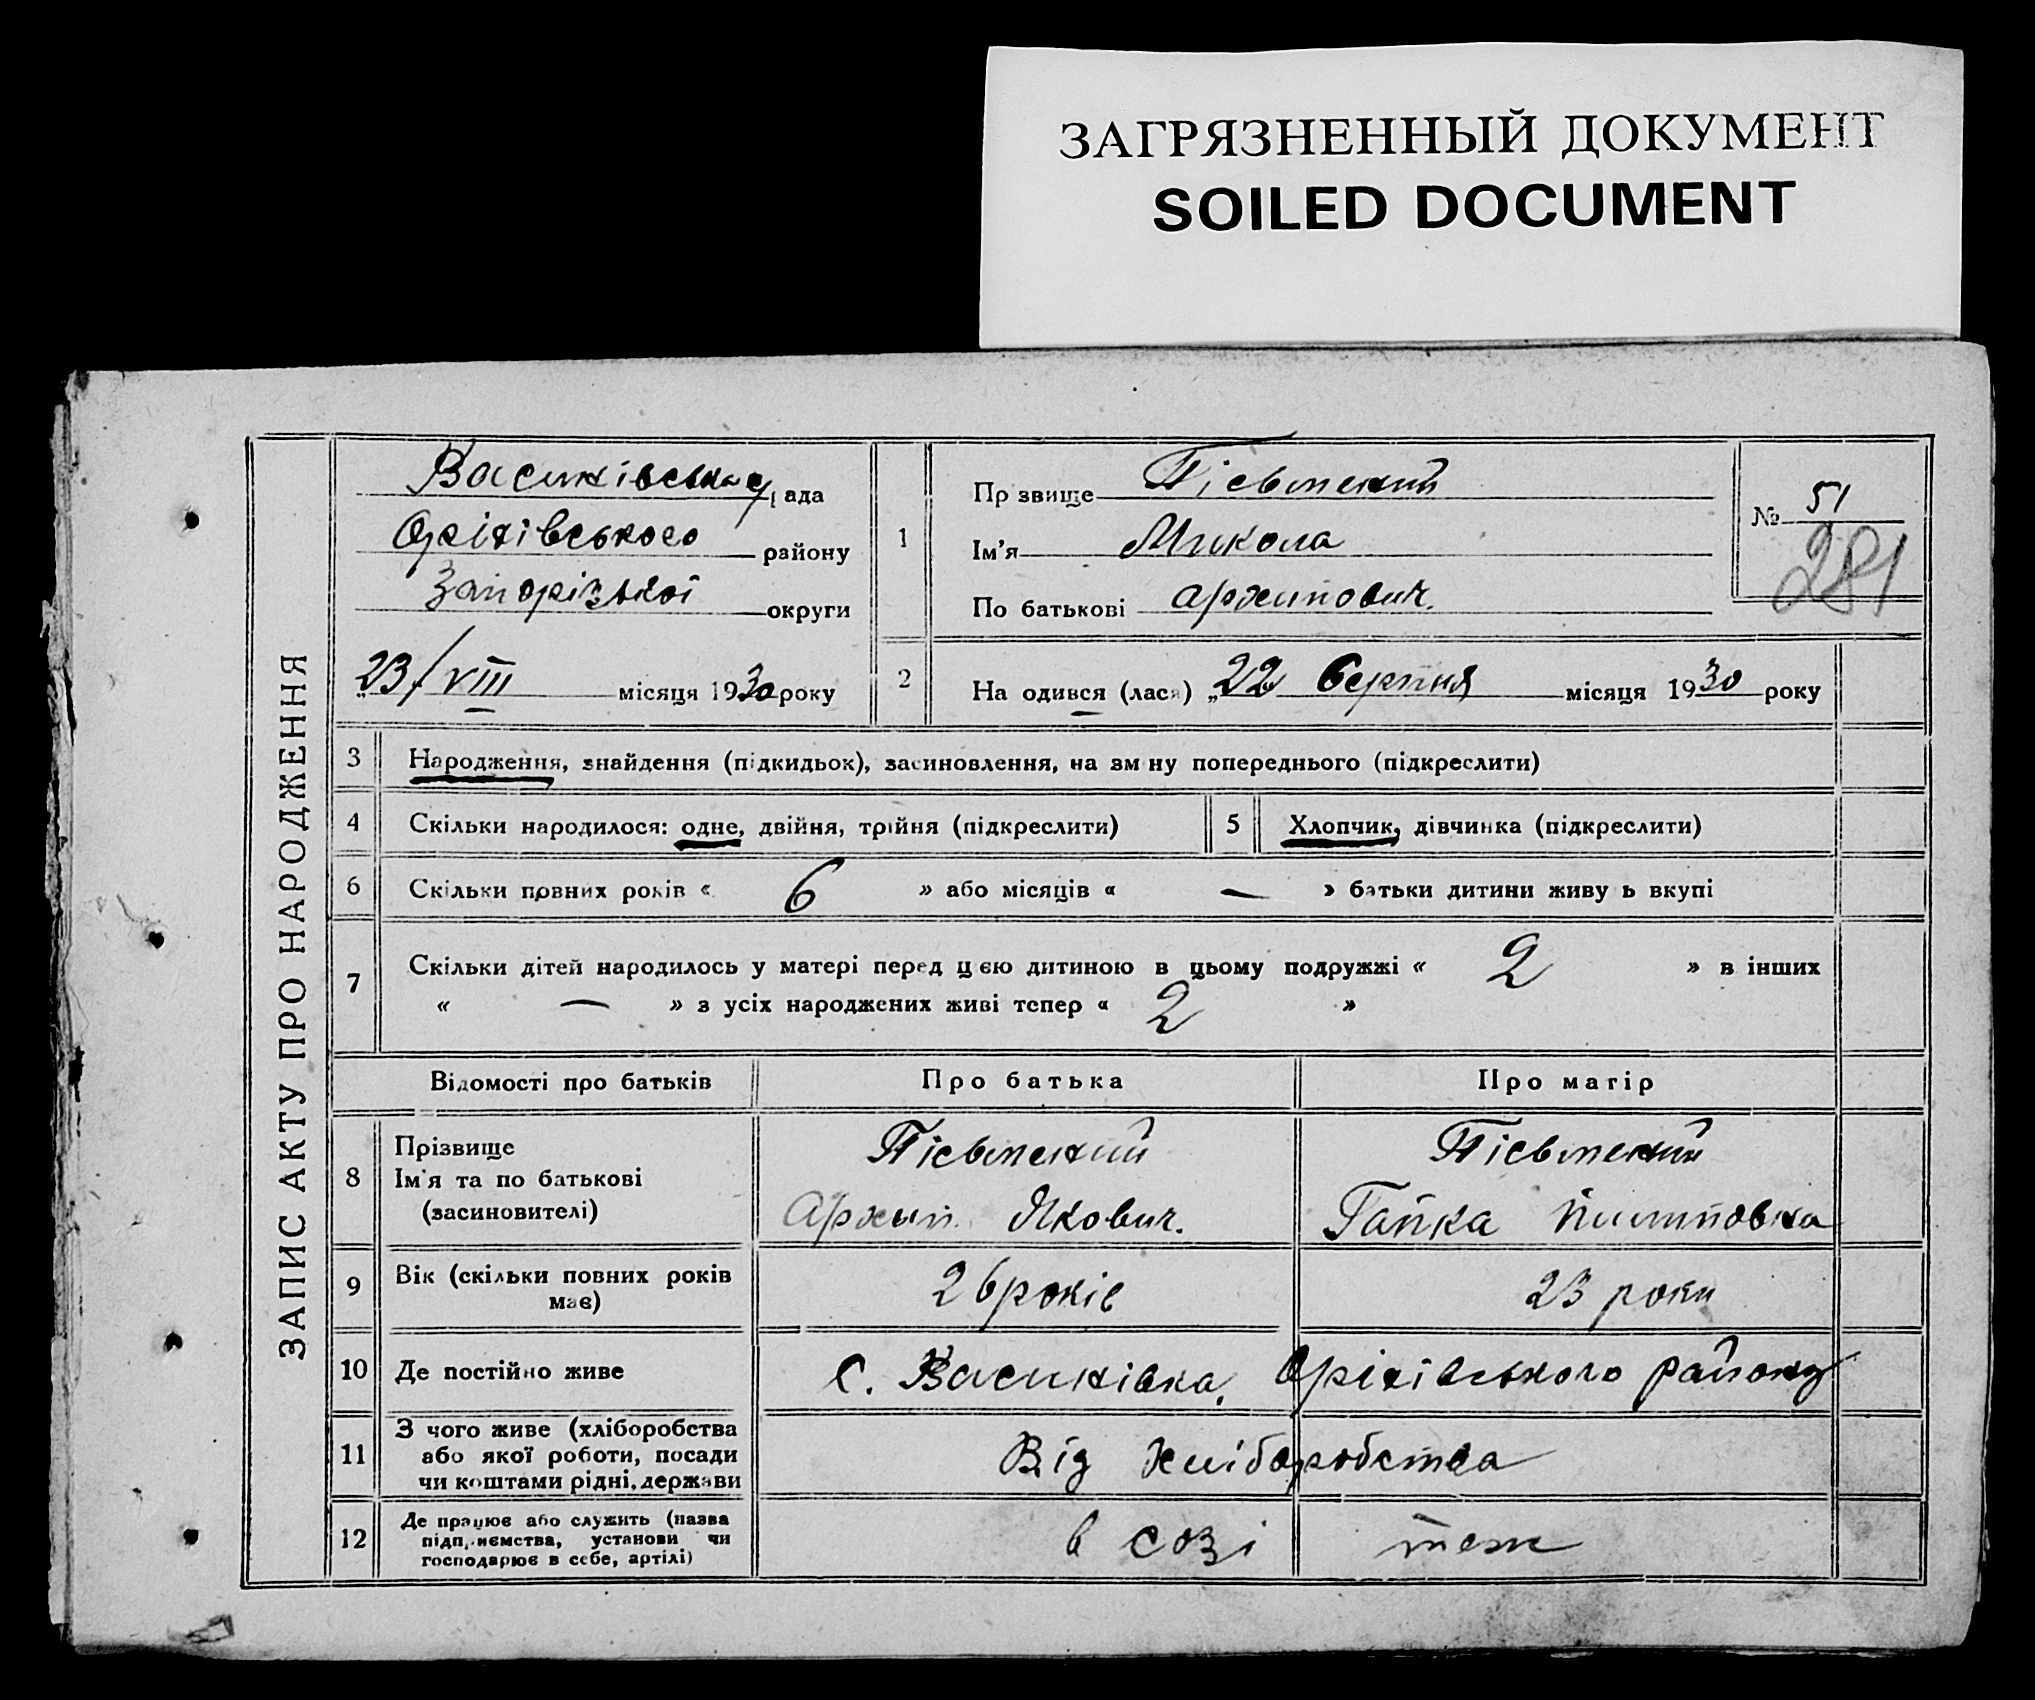 ЗАГРЯЗНЕННЫЙ ДОКУМЕНТ
SOILED DOCUMENT
ЗАПИС АКТУ ПРО НАРОДЖЕННЯ
Василівська рада
Оріхівського району
Запорізької округи
„23/VIII місяця 1930 року
1
Прізвище
Ім'я Микола
По батькові Архипович.
№ 51
281
2
На одився (лася) „22 Серпня місяця 1930 року
3 Народження, знайдення (підкидьок), засиновлення, на зм ну попереднього (підкреслити)
4 Скільки народилося: одне, двійня, трійня (підкреслити)
5 Хлопчик, дівчинка (підкреслити)
6 Скільки повних років « 6 » або місяців « — » батьки дитини живу ь вкупі
7 Скільки дітей народилось у матері перед цією дитиною в цьому подружжі « 2 » в інших
« — » з усіх народжених живі тепер « 2 »
Відомості про батьків Про батька Про матір
8 Прізвище
Ім'я та по батькові Архип Якович. Гапка Пилиповна
(засиновителі)
9 Вік (скільки повних років має) 26 років 23 роки
10 Де постійно живе с. Василівка, Оріхівського району
11 З чого живе (хліборобства
або якої роботи, посади Від хліборобства
чи коштами рідні, держави
12 Де працює або служить (назва
підп иємства, установи чи в созі теж
господарює в себе, артілі)